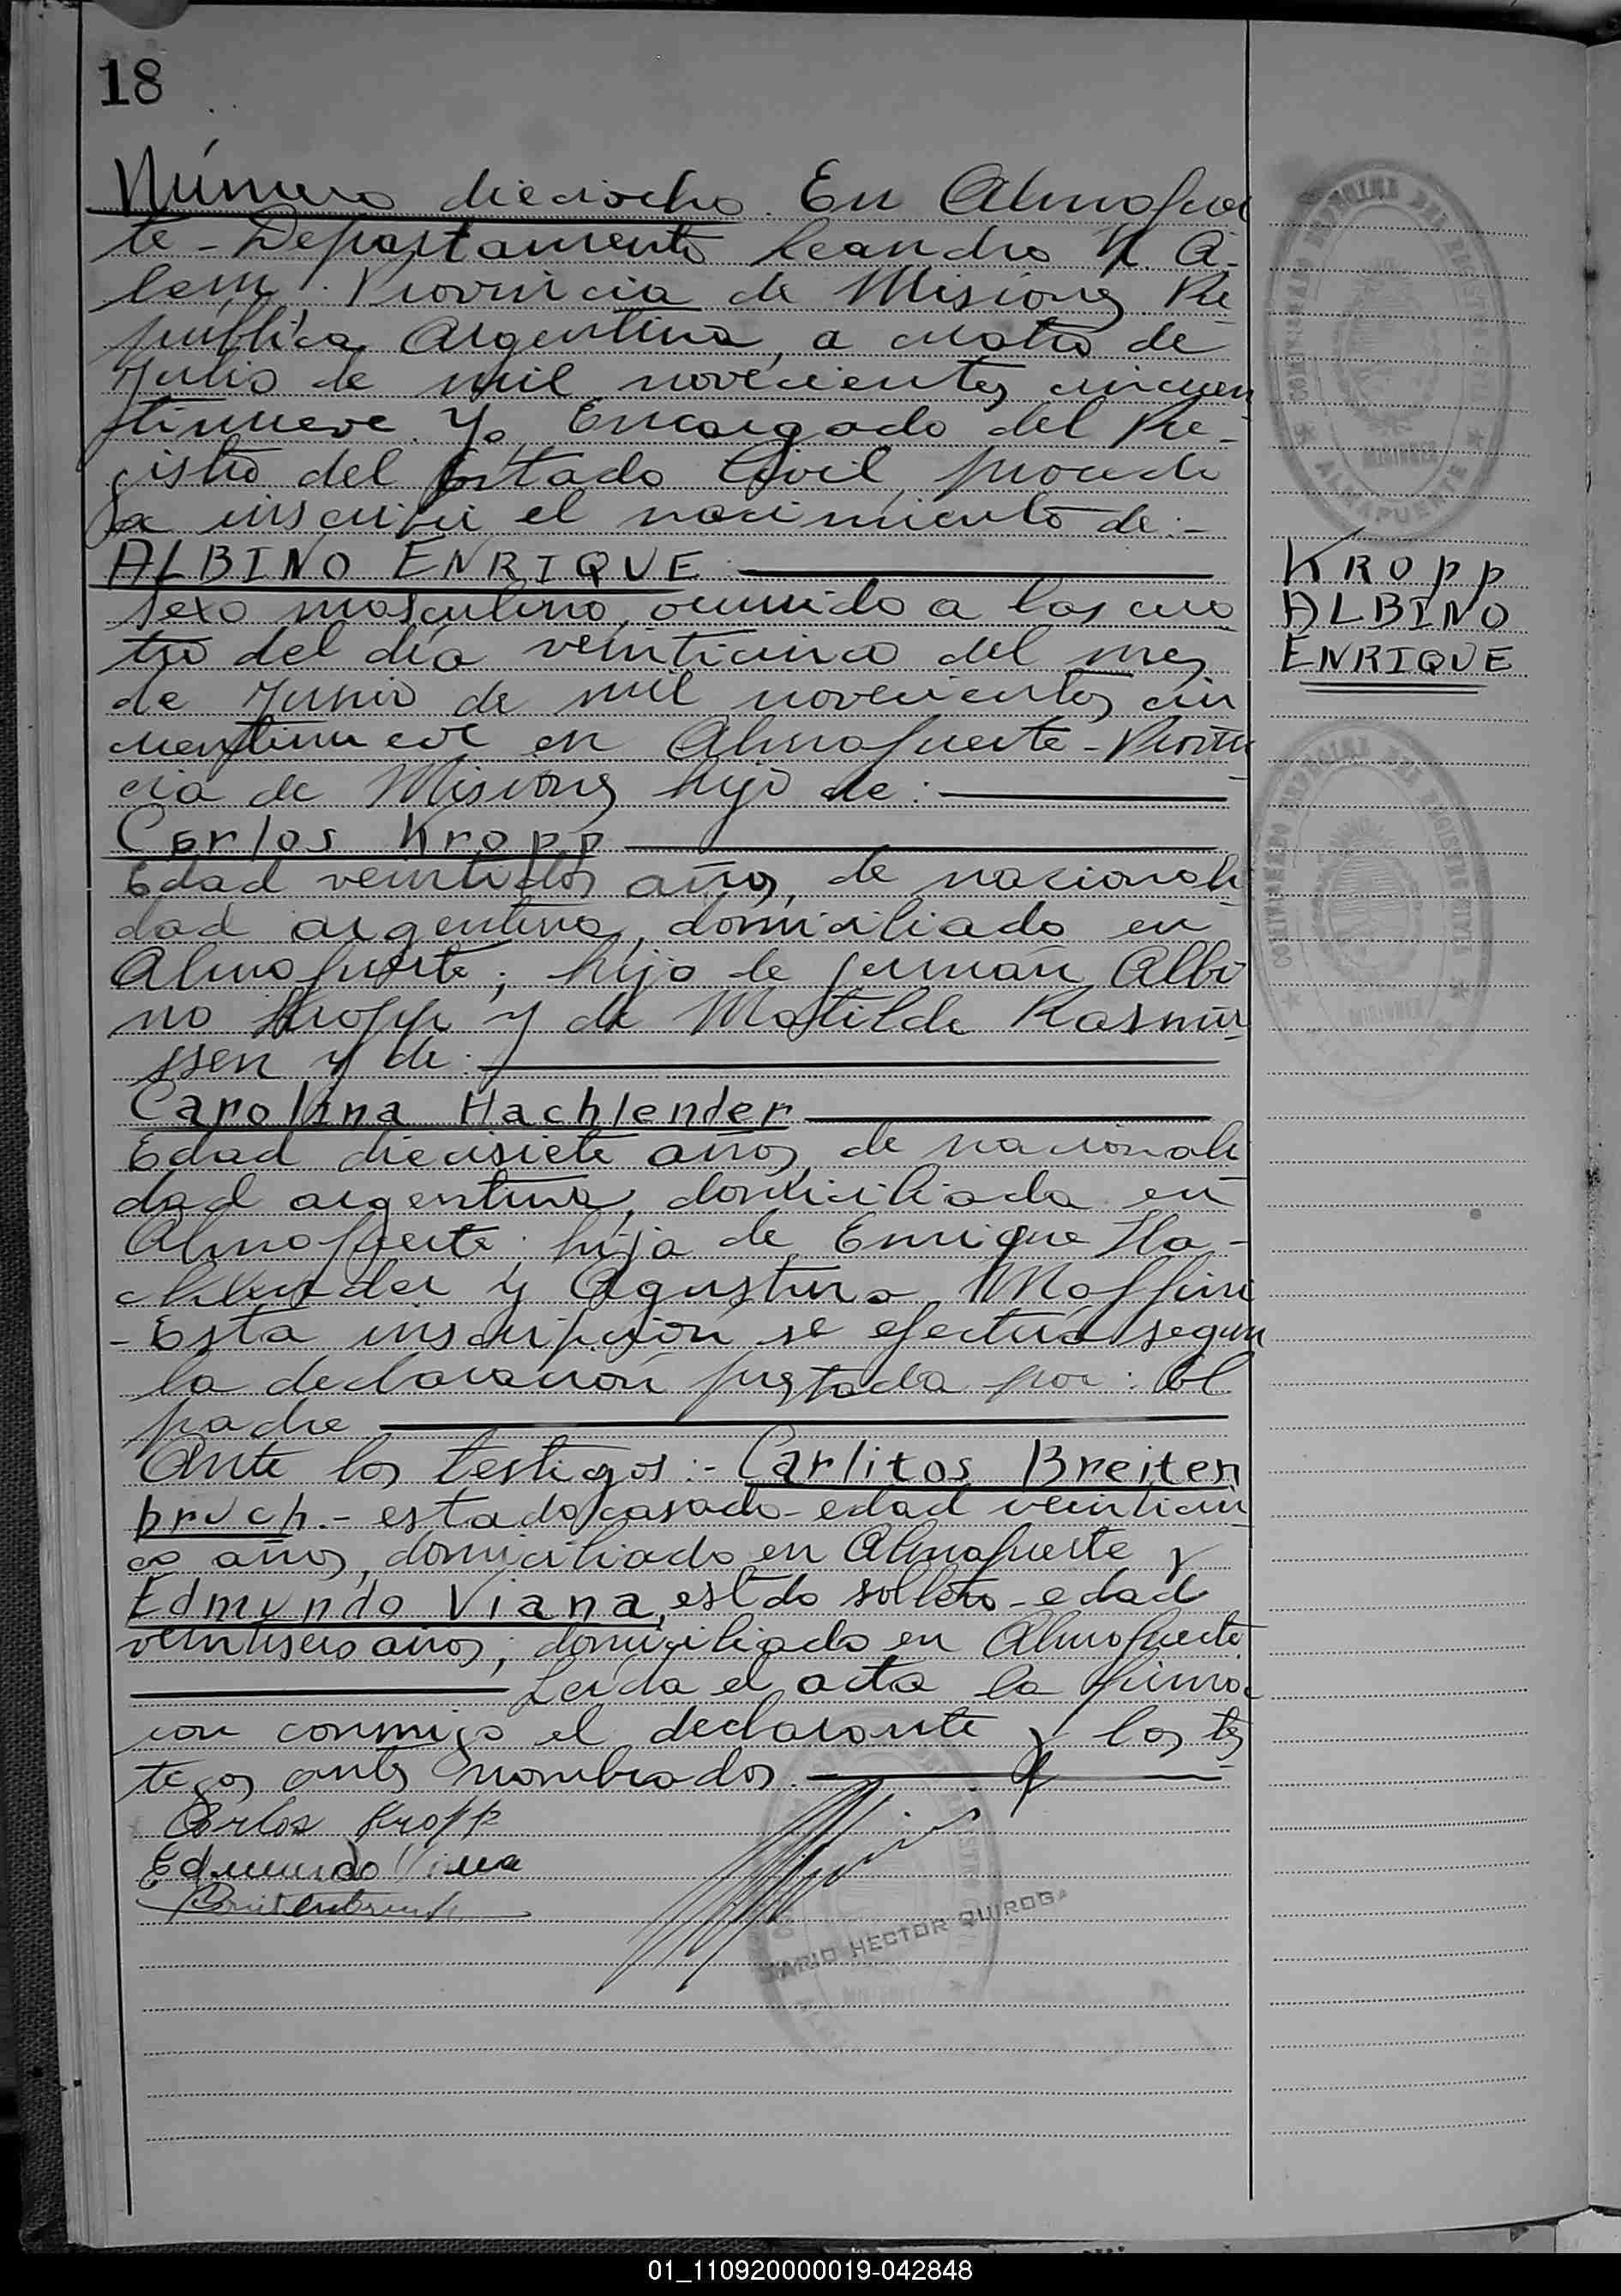 18
Número dieciocho. En Almafuer
te - Departamento Leandro N. A-
lem. Provincia de Misiones. Re
pública Argentina, a cuatro de
Julio de mil novecientos cincuen
tinueve. Yo Encargado del Re-
gistro del Estado Civil, procedi
a inscribir el nacimiento de:-
ALBINO ENRIQUE
sexo masculino, ocurrido a las cua
tro del día veinticinco del mes
de Junio de mil novecientos cin
cuentinueve en Almafuerte - Provin
cia de Misiones hijo de:
Carlos Kropp
Edad veintidos años, de nacionali
dad argentina, domiciliado en
Almafuerte; hijo de Germán Albi
no Kropp y de Matilde Rasmu
ssen y de:
Carolina Hachlender
Edad diecisiete años, de nacionali
dad argentina, domiciliada en
Almafuerte; hija de Enrique Ha-
chlender y Agustina
- Esta inscripción se efectúa según
la declaración prestada por: El
padre
Ante los testigos:- Carlitos Breiten
bruch.- estado casado - edad veinticin
co años, domiciliado en Almafuerte y
Edmundo Viana, estdo soltero - edad
veintiseis años; domiciliado en Almafuerte
Leída el acta la firma
con conmigo el declarante y los tes
tigos antes nombrados.
Carlos Kropp
Edmundo Viana
MARIO HECTOR QUIROGA
KROPP
ALBINO
ENRIQUE
REGISTRO CIVIL
MISIONES
ALMAFUERTE
01_110920000019-042848